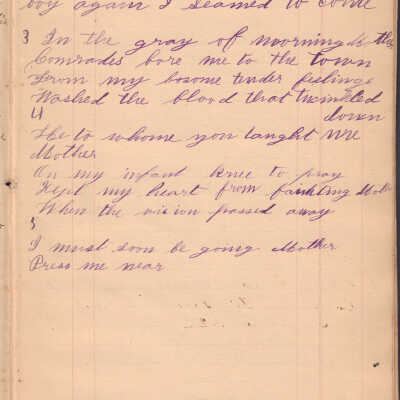 boy again I seamed to come
3 In the gray of morning the
Comrades bore me to the town
From my bosome tender feelings
Washed the blood that twinkled
down
4
He to whome you taught me
Mother
On my infant knee to pray
Kept my heart from
When the vision passed away
5
I must soon be going Mother
Press me near